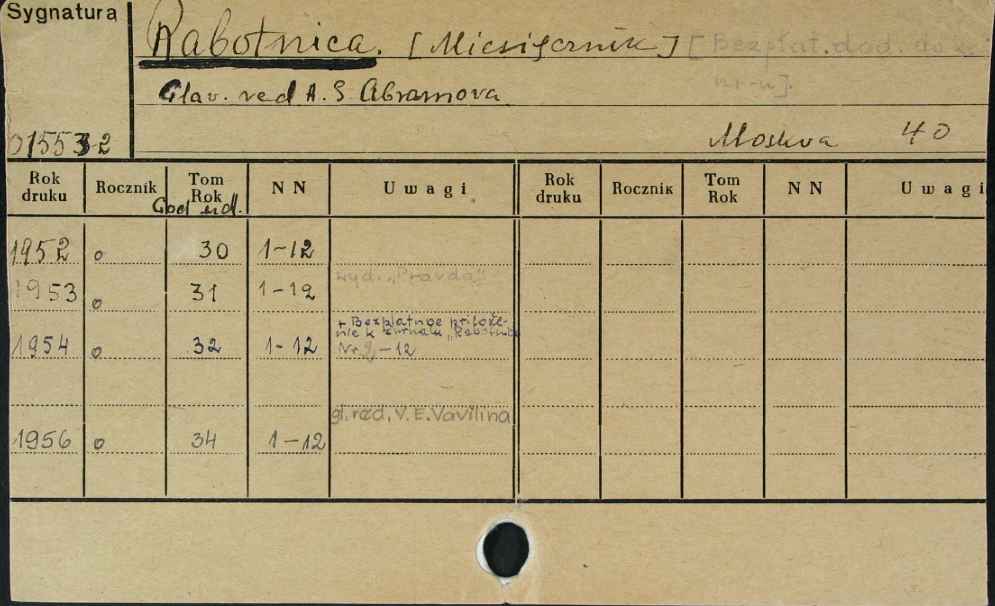 Sygnatura
Rabotnica. [Miesięcznik] [Bezpłat. dod. do
nr-u].
Glav. red A. S. Abramova
015532
Moskva 40
Rok druku Rocznik Tom Rok NN Uwagi Rok druku Rocznik Tom Rok NN Uwagi
God izd.
1952 o 30 1-12
wyd. „Pravda"
1953 o 31 1-12
+ Bezplatnoe prilože-
nie k žurnalu „Rabotnica
1954 o 32 1-12 Nr 2,-12
gl. red. V. E. Vavilina
1956 o 34 1-12